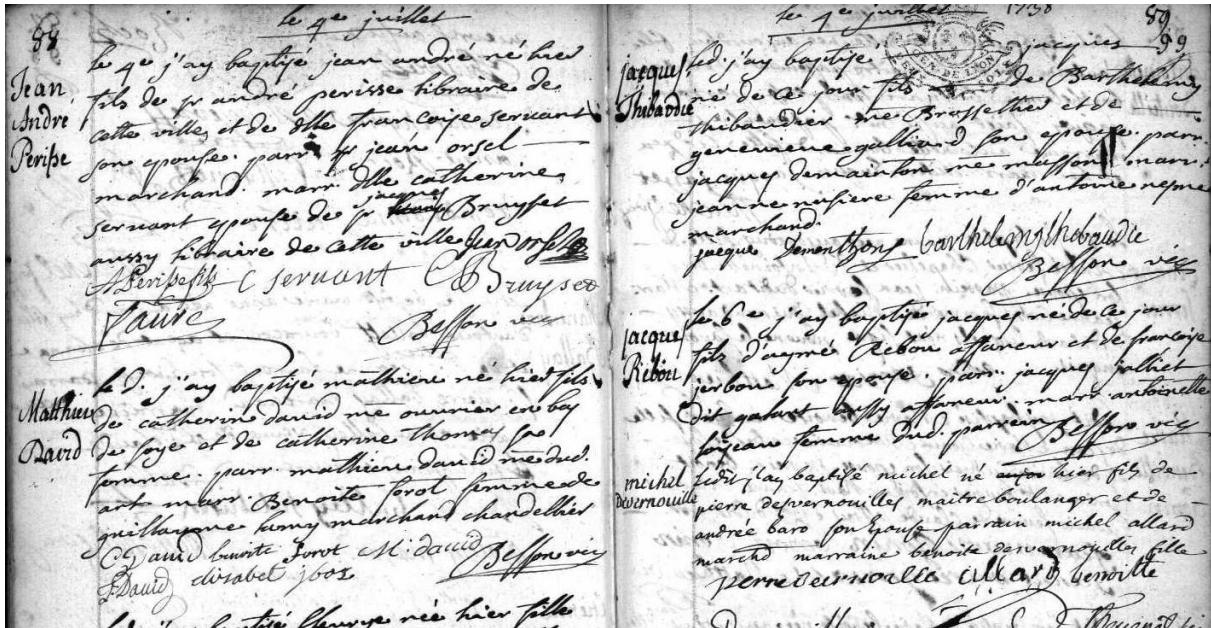 88
le 4e juillet
Jean
André
Perisse
le 4e j'ay baptisé jean andré né hier
fils de sr andré perisse libraire de
cette ville, et de dlle françoise servant
son epouse. parr. sr jean orsel
marchand. marr. dlle catherine
servant epouse de sr jacques Bruysset
aussy libraire de cette ville Jean orsel
A Perisse fils C servant C Bruyset
faure
Besson vic
Matthieu
David
Le d. j'ay baptisé mathieu né hier fils
de catherin david me ouvrier en bas
de soye et de catherine thomas sa
femme. parr. mathieu david me dud.
art marr. Benoite forot femme de
guillaume marchand chandellier
C David benoite forot M. david
Besson vic
David elisabet
Le d. j'ay baptisé né hier fille
le 4e juillet 1738
89
99
jacques
Thibaudie
Led. j'ay baptisé jacques
né de ce jour fils de Barthelemy
thibaudier me et de
genevieve galliard son epouse. parr.
jacques demainton me masson marr.
jeanne femme d'antoine nesme
marchand.
jacque Dementhons barthelemy thibaudie
Besson vic
jacques
Rebou
Le 6e j'ay baptisé jacques né de ce jour
fils d'aymé Rebou affaneur et de françoise
jerbou son epouse. parr. jacques jalliet
dit galart aussy affaneur. marr. antoinette
loyseau femme dud. parrein Besson vic
michel
Desvernouille
Ledit j'ay baptisé michel né hier fils de
pierre desvernouilles maitre boulanger et de
andrée baro son Epouse parrain michel allard
marchd marraine benoite desvernouilles fille
pierre allard benoitte